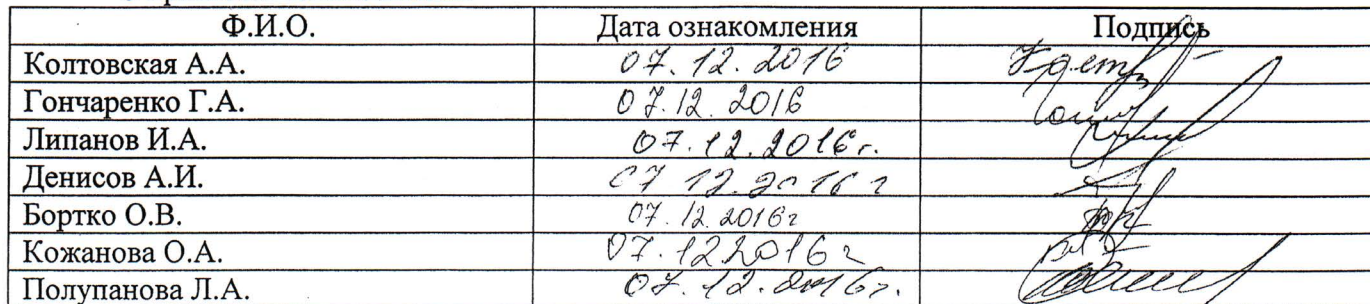 Ф.И.О. Дата ознакомления Подпись
Колтовская А.А. 07.12.2016
Гончаренко Г.А. 07.12.2016
Липанов И.А. 07.12.2016г.
Денисов А.И. 07 12.2016 г
Бортко О.В. 07.12.2016г
Кожанова О.А. 07.122016г
Полупанова Л.А. 07.12.2016г.